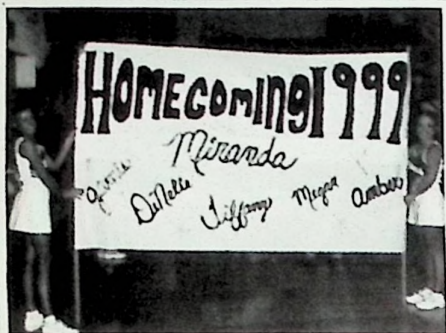 HOMECOMINg1999
Miranda
DiNelle Tiffany Megan Amber